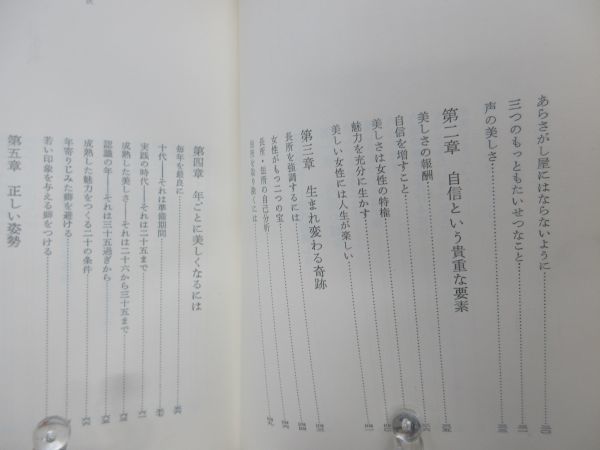 あらさがし屋にはならないように
三つのもっともたいせつなこと
声の美しさ
第二章 自信という貴重な要素
美しさの報酬
自信を増すこと
美しさは女性の特権
魅力を充分に生かす
美しい女性には人生が楽しい
第三章 生まれ変わる奇跡
長所を強調するには
女性がもつ二つの宝
長所・短所の自己分析
短所を取り除くには
第四章 年ごとに美しくなるには
毎年を最良に
十代——それは準備期間
実践の時代——それは二十五まで
成熟した美しさ——それは二六から三十五まで
認識の年——それは三十五過ぎから
成熟した魅力をつくる二十の条件
年寄りじみた癖を避ける
若い印象を与える癖をつける
第五章 正しい姿勢